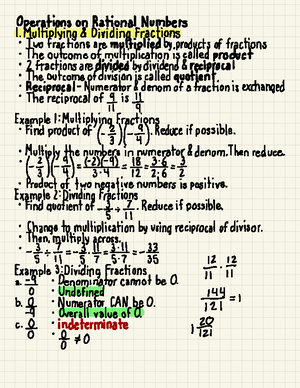 Operations on Rational Numbers
1. Multiplying & Dividing Fractions
• Two fractions are multiplied by products of fractions
• The outcome of multiplication is called product
• 2 fractions are divided by dividend & reciprocal
• The outcome of division is called quotient.
• Reciprocal - Numerator & denom of a fraction is exchanged
• The reciprocal of 9/11 is 11/9
Example 1: Multiplying Fractions
• Find product of (-2/3)(-9/4). Reduce if possible.
• Multiply the numerators in numerator & denom. Then reduce.
• (-2/3)(-9/4) = (-2)(-9)/3·4 = 18/12 = 3·6/2·6 = 3/2
• Product of two negative numbers is positive.
Example 2: Dividing Fractions
• Find quotient of -3/5 ÷ 7/11. Reduce if possible.
• Change to multiplication by using reciprocal of divisor.
• Then, multiply across.
Example 3: Dividing Fractions
a. -9/0 • Denominator cannot be 0.
• Undefined
b. 0/-9 • Numerator CAN be 0.
• Overall value of 0.
c. 0/0 • indeterminate
• 0/0 ≠ 0
12/11 · 12/11
144/121 = 1
1 20/121